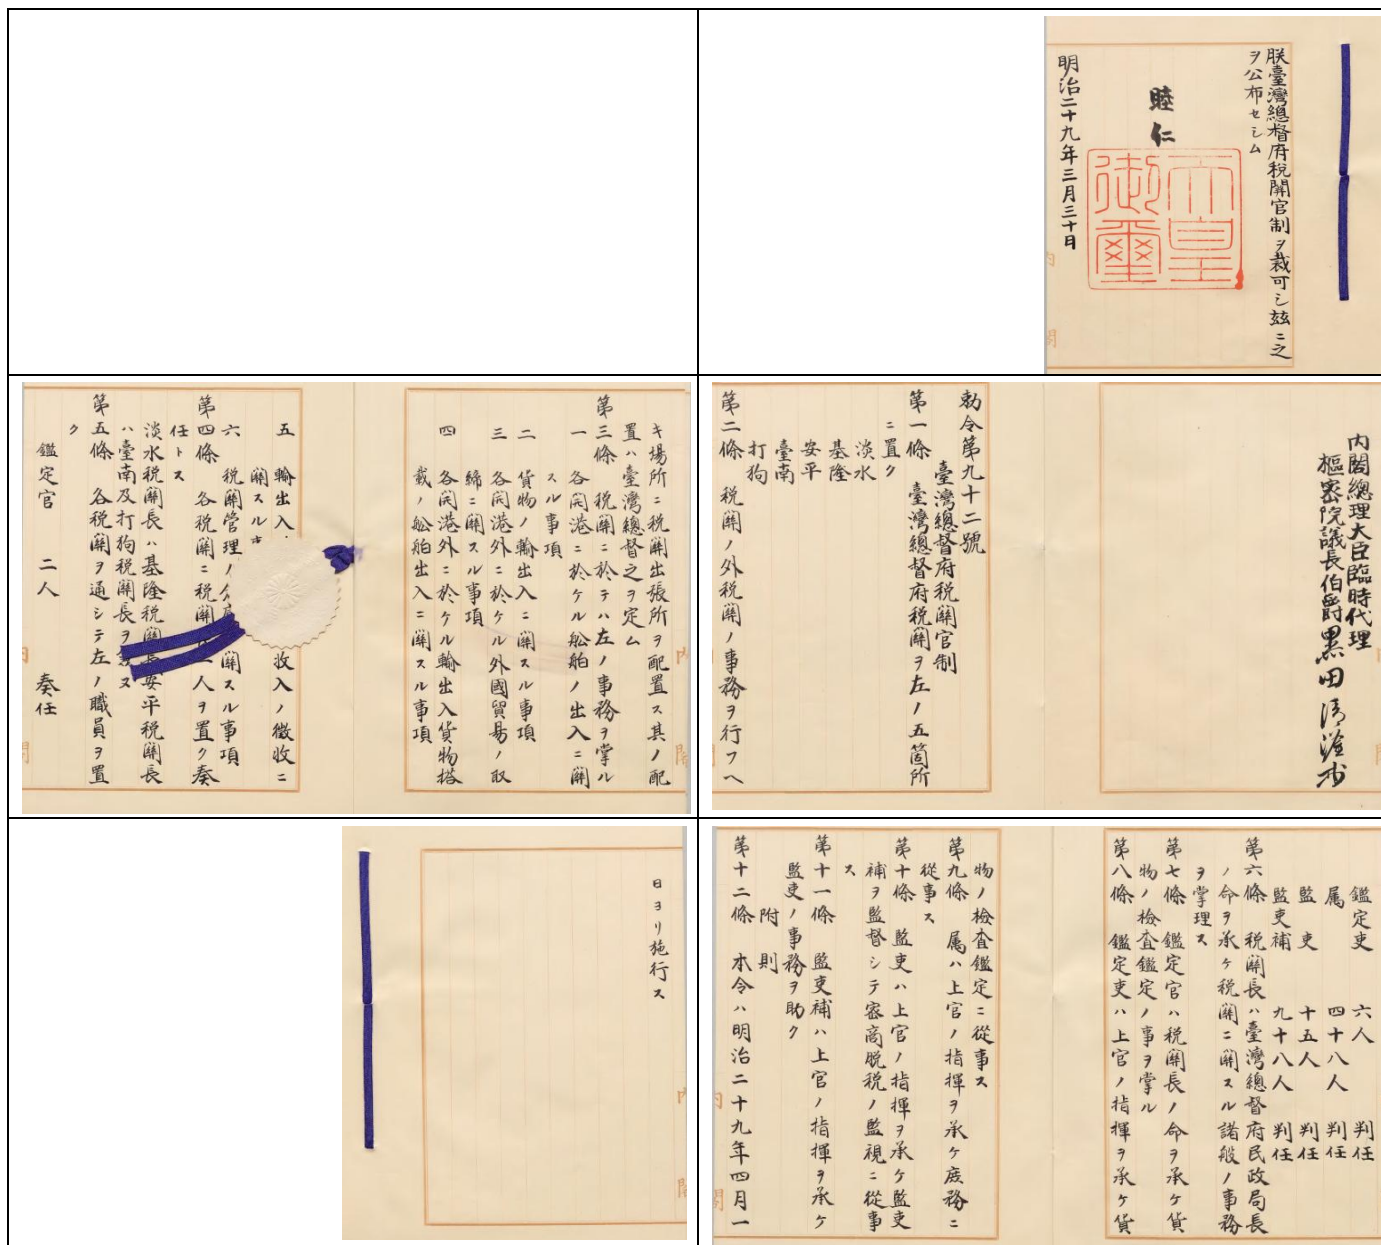 朕臺灣總督府稅關官制ヲ裁可シ玆ニ之
ヲ公布セシム
睦仁
天皇御璽
明治二十九年三月三十日
內閣總理大臣臨時代理
樞密院議長伯爵黑田清隆
勅令第九十二號
臺灣總督府稅關官制
第一條 臺灣總督府稅關ヲ左ノ五箇所
ニ置ク
淡水
基隆
安平
臺南
打狗
第二條 稅關ノ外稅關ノ事務ヲ行フヘ
キ場所ニ稅關出張所ヲ配置ス其ノ配
置ハ臺灣總督之ヲ定ム
第三條 稅關ニ於テハ左ノ事務ヲ掌ル
一 各開港ニ於ケル舩舶ノ出入ニ關
スル事項
二 貨物ノ輸出入ニ關スル事項
三 各開港外ニ於ケル外國貿易ノ取
締ニ關スル事項
四 各開港外ニ於ケル輸出入貨物搭
載ノ舩舶出入ニ關スル事項
五 輸出入 收入ノ徵收ニ
關スル
六 稅關管理ノ 關スル事項
第四條 各稅關ニ稅關 人ヲ置ク奏
任トス
淡水稅關長ハ基隆稅關長安平稅關長
ハ臺南及打狗稅關長ヲ ヌ
第五條 各稅關ヲ通シテ左ノ職員ヲ置
ク
鑑定官 二人 奏任
鑑定吏 六人 判任
属 四十八人 判任
監吏 十五人 判任
監吏補 九十八人 判任
第六條 稅關長ハ臺灣總督府民政局長
ノ命ヲ承ケ稅關ニ關スル諸般ノ事務
ヲ掌理ス
第七條 鑑定官ハ稅關長ノ命ヲ承ケ貨
物ノ檢査鑑定ノ事ヲ掌ル
第八條 鑑定吏ハ上官ノ指揮ヲ承ケ貨
物ノ檢査鑑定ニ從事ス
第九條 属ハ上官ノ指揮ヲ承ケ庶務ニ
從事ス
第十條 監吏ハ上官ノ指揮ヲ承ケ監吏
補ヲ監督シテ密商脫稅ノ監視ニ從事
ス
第十一條 監吏補ハ上官ノ指揮ヲ承ケ
監吏ノ事務ヲ助ク
附則
第十二條 本令ハ明治二十九年四月一
日ヨリ施行ス